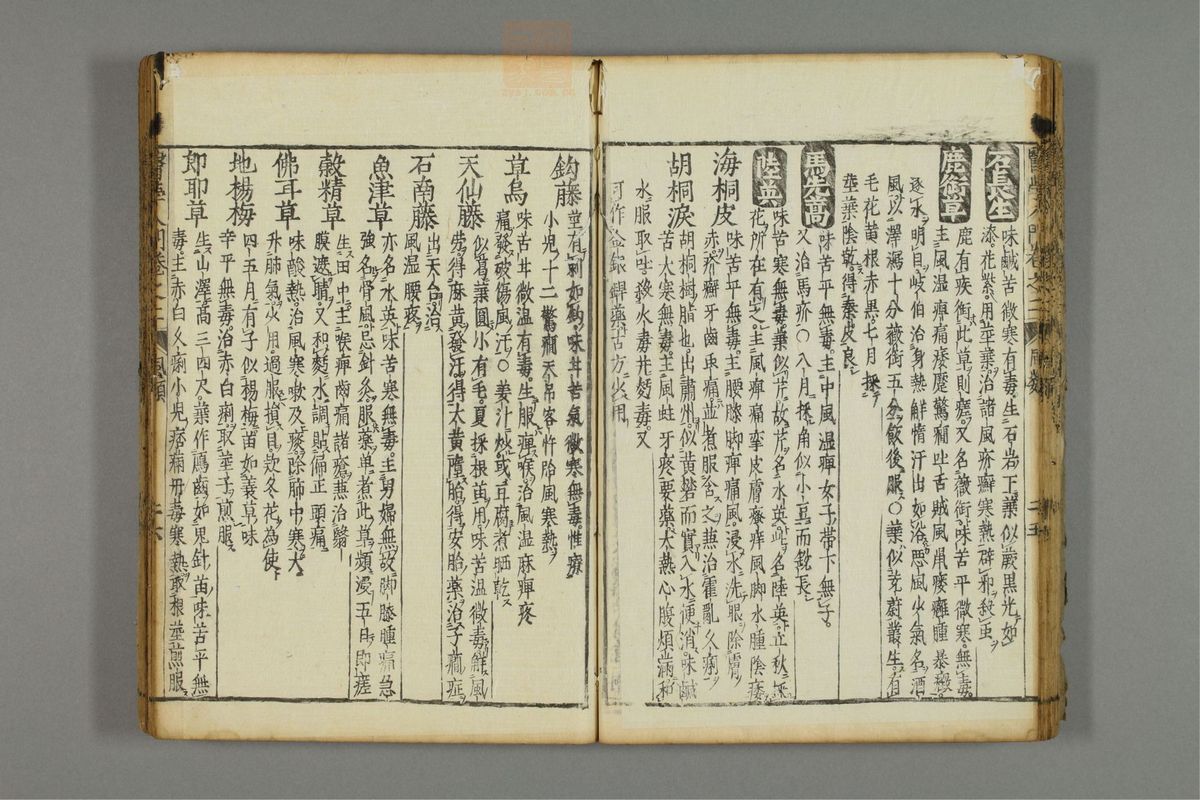 石長生 味鹹苦微寒有毒生石岩下葉似蕨黒光如
漆花紫用莖葉治諸風疥癬寒熱辟邪殺虫
鹿銜草 鹿有疾銜此草則瘥又名薇銜味苦平微寒無毒
主風湿痺痛痿躄驚癇吐舌賊風鼠瘻癰腫暴癥
逐水明目岐伯治身熱觧惰汗出如浴悪風少氣名酒
風以澤瀉十分薇銜五分飯後服○葉似茺蔚叢生有
毛花黄根赤黒七月採
莖葉陰乾得秦皮良
馬先蒿 味苦平無毒主中風湿痺女子帶下無子
又治馬疥○八月採角似小豆而銳長
陸英 味苦寒無毒葉似芹故芹名水英此名陸英立秋採
花所在有之主風痺痛挛皮膚瘙痒風脚水腫陰痿
海桐皮 味苦平無毒主腰膝脚痺痛風浸水洗眼除膚
赤疥癬牙齒虫痛並煮服含之兼治霍亂久痢
胡桐淚 胡桐樹脂也出肅州似黄礬而實入水便消味鹹
苦大寒無毒主風蛀牙疼要藥大熱心腹煩滿和
水服取吐殺火毒并麪毒又
可作金銀銲藥古方少用
鈎藤 莖有刺如鈎味甘苦氣微寒無毒性療
小兒十二驚癇天吊客忤胎風寒熱
草烏 味苦甘微温有毒生服痺喉治風温麻痺疼
痛發破傷風汗○姜汁炒或豆腐煮晒乾
天仙藤 似葛葉圓小有毛夏採根苗用味苦温微毒觧風
勞得麻黄發汗得大黄墮胎得安胎藥治子癎症
石南藤 出天台治
風湿腰疼
魚津草 亦名水英味苦寒無毒主男婦無故脚膝腫痛急
強名骨風忌針灸服藥单煮此草頻浸五日即瘥
穀精草 生田中主喉痺齒痛諸瘡兼治翳
膜遮睛又和麪水調貼偏正頭痛
佛耳草 味酸熱治風寒嗽及痰除肺中寒大
升肺氣少用過服損目欵冬花為使
地楊梅 四五月有子似楊梅苗如蓑草味
辛平無毒治赤白痢取莖子煎服
郎耶草 生山澤髙三四尺葉作鴈齒如鬼針苗味苦平無
毒主赤白久痢小兒痞滿丹毒寒熱取根莖煎服